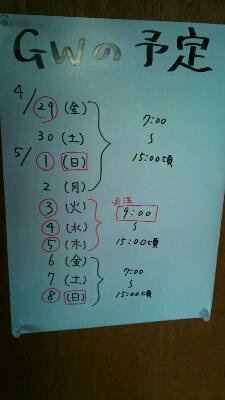 GWの予定
4/29 (金)
30 (土)
5/1 (日)
2 (月)
7:00
~
15:00頃
3 (火)
4 (水)
5 (木)
9:00
~
15:00頃
6 (金)
7 (土)
8 (日)
7:00
~
15:00頃